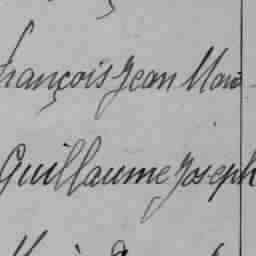 françois Jean Marie
Guillaume Joseph